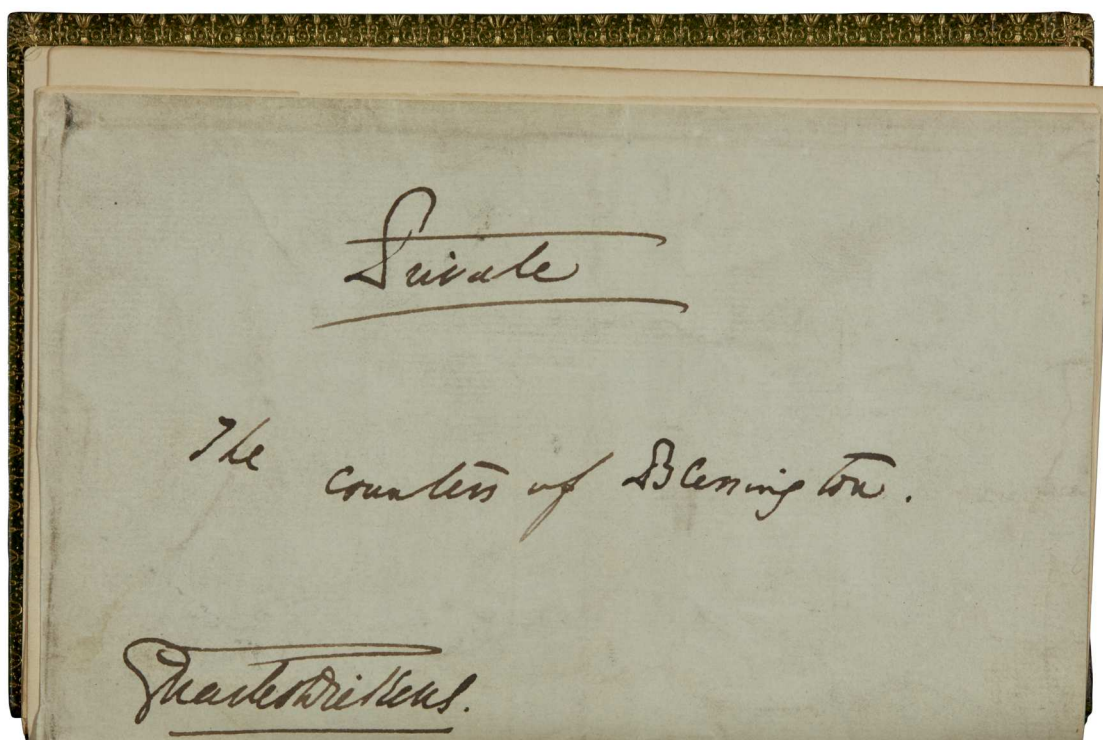 Private
The Countess of Blessington.
Charles Dickens.